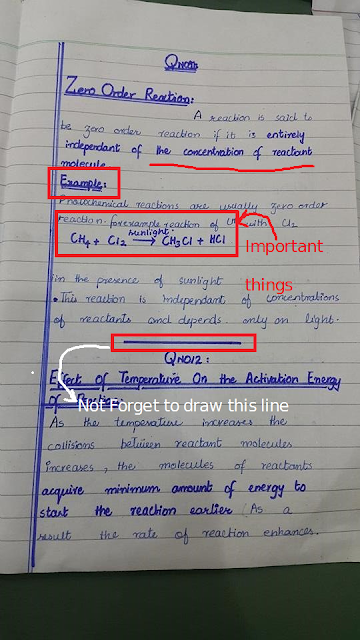 QNO1:
Zero Order Reaction:
A reaction is said to
be zero order reaction if it is entirely
independant of the concentration of reactant
molecule.
Example:
Photochemical reactions are usually zero order
reaction. for example reaction of with Cl2
sunlight.
CH4 + Cl2 → CH3Cl + HCl
Important
things
in the presence of sunlight
• This reaction is independant of concentrations
of reactants and depends only on light.
QNO12:
Effect of Temperature On the Activation Energy
of
Not Forget to draw this line
As the temperature increases the
collisions between reactant molecules
increases, the molecules of reactants
acquire minimum amount of energy to
start the reaction earlier. As a
result the rate of reaction enhances.